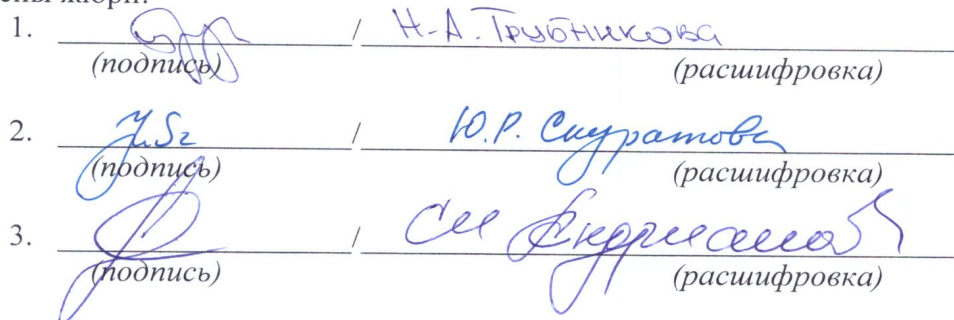 жюри:
1. / Н.А. Трубникова
(подпись) (расшифровка)
2. / Ю.Р. Скуратова
(подпись) (расшифровка)
3. /
(подпись) (расшифровка)